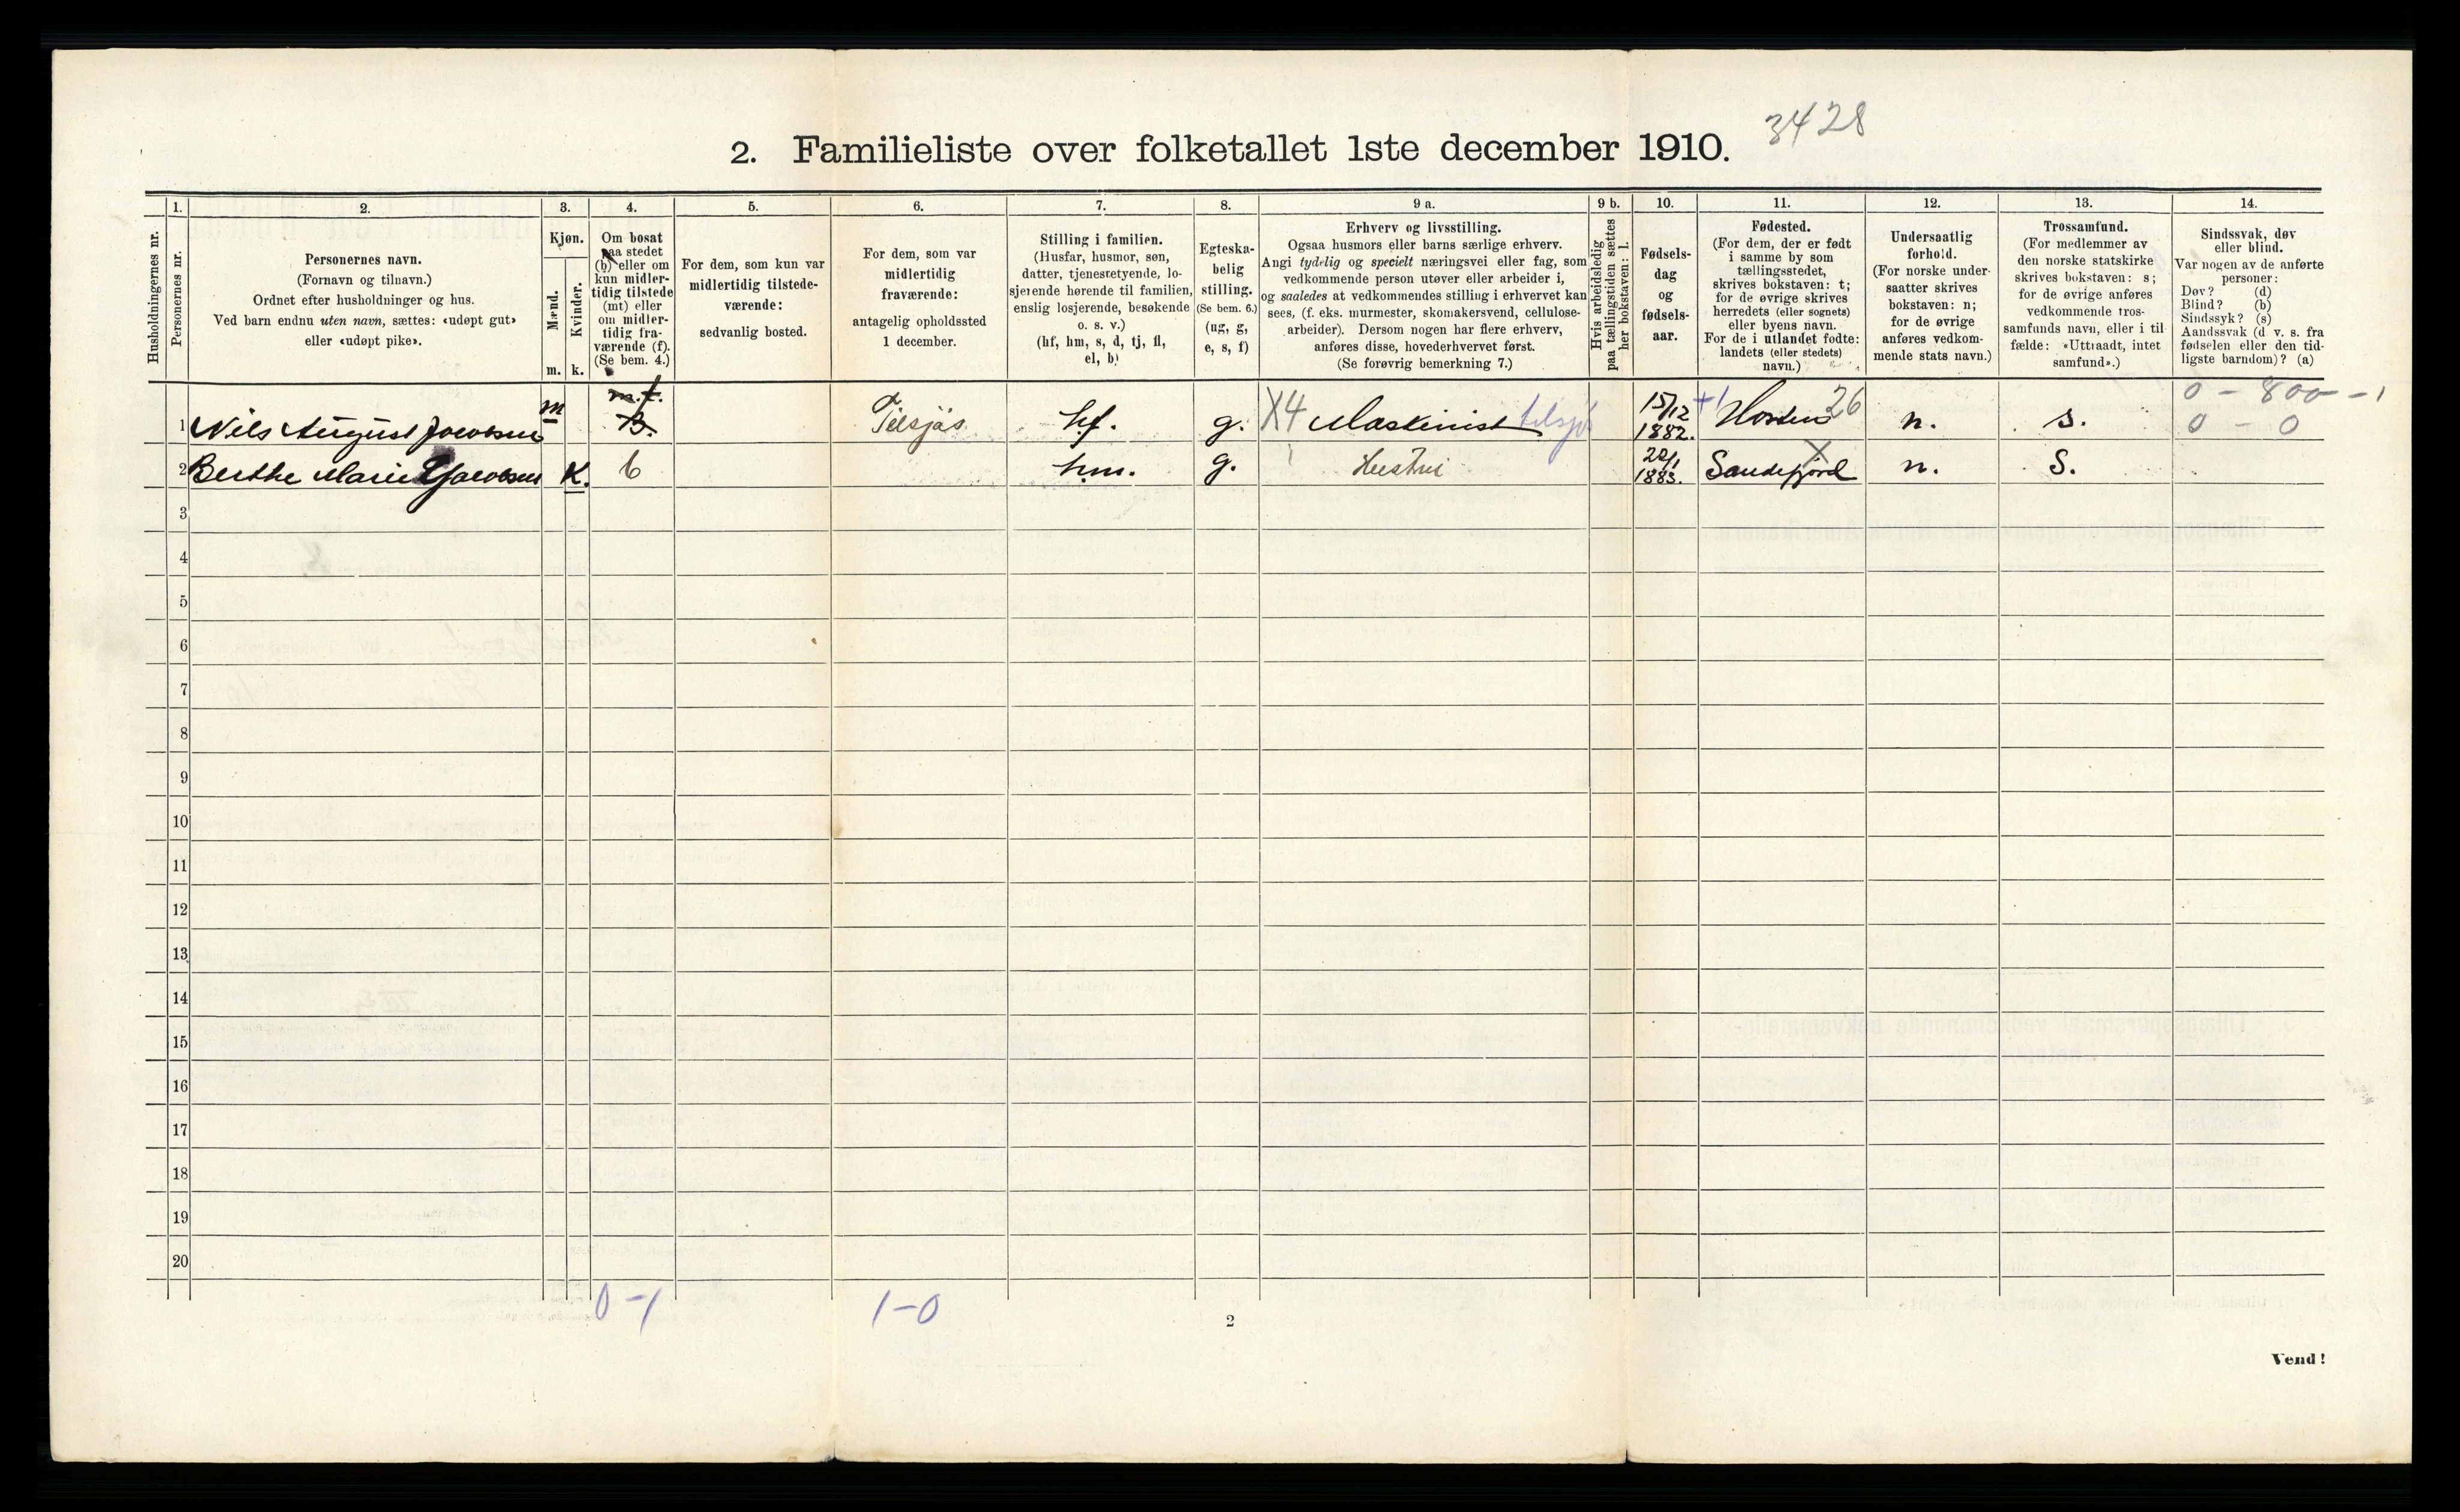 3428
2. Familieliste over folketallet 1ste december 1910.
Husholdningernes nr.
1.
Personernes nr.
2.
Personernes navn.
(Fornavn og tilnavn.)
Ordnet efter husholdninger og hus.
Ved barn endnu uten navn, sættes: «udøpt gut»
eller «udøpt pike».
3.
Kjøn.
Mænd.
Kvinder.
m. k.
4.
Om bosat
paa stedet
(b) eller om
kun midler-
tidig tilstede
(mt) eller
om midler-
tidig fra-
værende (f).
(Se bem. 4.)
5.
For dem, som kun var
midlertidig tilstede-
værende:
sedvanlig bosted.
6.
For dem, som var
midlertidig
fraværende:
antagelig opholdssted
1 december.
7.
Stilling i familien.
(Husfar, husmor, søn,
datter, tjenestetyende, lo-
sjerende hørende til familien,
enslig losjerende, besøkende
o. s. v.)
(hf, hm, s, d, tj, fl,
el, b)
8.
Egteska-
belig
stilling.
(Se bem. 6.)
(ug, g,
e, s, f)
9 a.
Erhverv og livsstilling.
Ogsaa husmors eller barns særlige erhverv.
Angi tydelig og specielt næringsvei eller fag, som
vedkommende person utøver eller arbeider i,
og saaledes at vedkommendes stilling i erhvervet kan
sees, (f. eks. murmester, skomakersvend, cellulose-
arbeider). Dersom nogen har flere erhverv,
anføres disse, hovederhvervet først.
(Se forøvrig bemerkning 7.)
9 b.
Hvis arbeidsledig
paa tællingstiden sættes
her bokstaven: l.
10.
Fødsels-
dag
og
fødsels-
aar.
11.
Fødested.
(For dem, der er født
i samme by som
tællingsstedet,
skrives bokstaven: t;
for de øvrige skrives
herredets (eller sognets)
eller byens navn.
For de i utlandet fødte:
landets (eller stedets)
navn.)
12.
Undersaatlig
forhold.
(For norske under-
saatter skrives
bokstaven: n;
for de øvrige
anføres vedkom-
mende stats navn.)
13.
Trossamfund.
(For medlemmer av
den norske statskirke
skrives bokstaven: s;
for de øvrige anføres
vedkommende tros-
samfunds navn, eller i til
fælde: «Uttraadt, intet
samfund».)
14.
Sindssvak, døv
eller blind.
Var nogen av de anførte
personer:
Døv? (d)
Blind? (b)
Sindssyk? (s)
Aandssvak (d v. s. fra
fødselen eller den tid-
ligste barndom)? (a)
0 - 800 - 1
1 Nils August Jacobsen m m.t. B. Tilsjøs hf. g. X4 Maskinist tilsjøs 15/12 1882. +1 Horten 26 n. s. 0 - 0
2 Berthe Marie Jacobsen K. b hm. g. Hustru 1883. Sandefjord X n. S.
3
4
5
6
7
8
9
10
11
12
13
14
15
16
17
18
19
20
0-1 1-0
2
Vend!